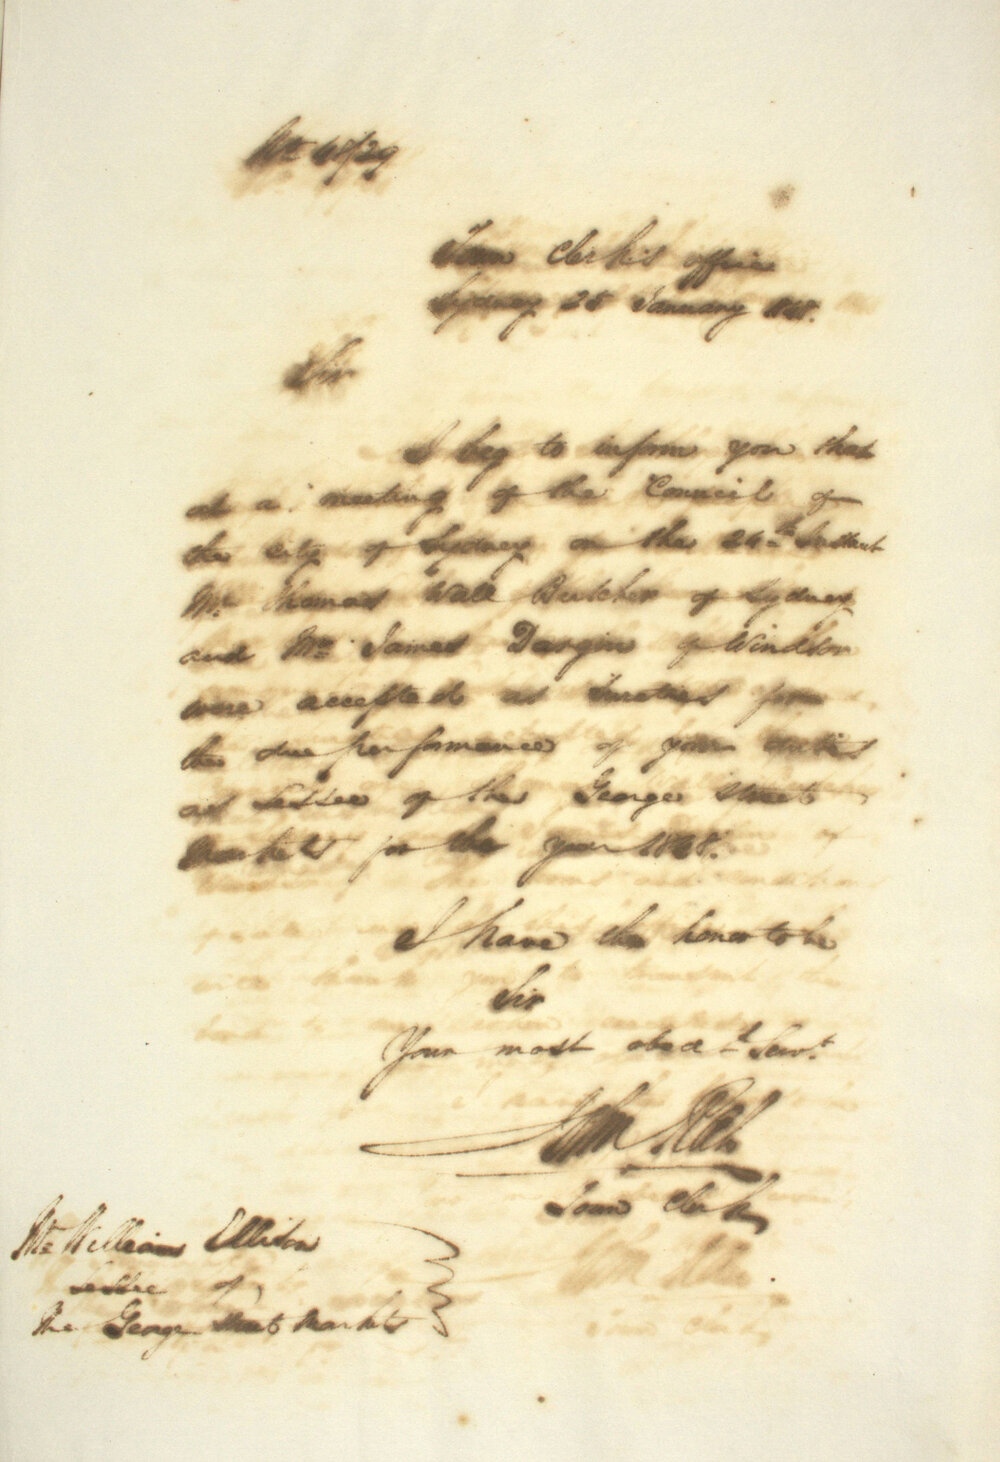 No 48/29
Town Clerk's office
Sydney 25 January 1848.
Sir
I beg to inform you that
at a meeting of the Council of
the City of Sydney on the 24th Instant
Mr Thomas Wall Butcher of Sydney
and Mr James Dargin of Windsor
were accepted as Sureties for
the due performance of your duties
as Lessee of the George Street
Markets for the year 1848.
I have the honor to be
Sir
Your most obedt Servt
John
Town Clerk
Mr William Ellison
Lessee of
The George Street Markets